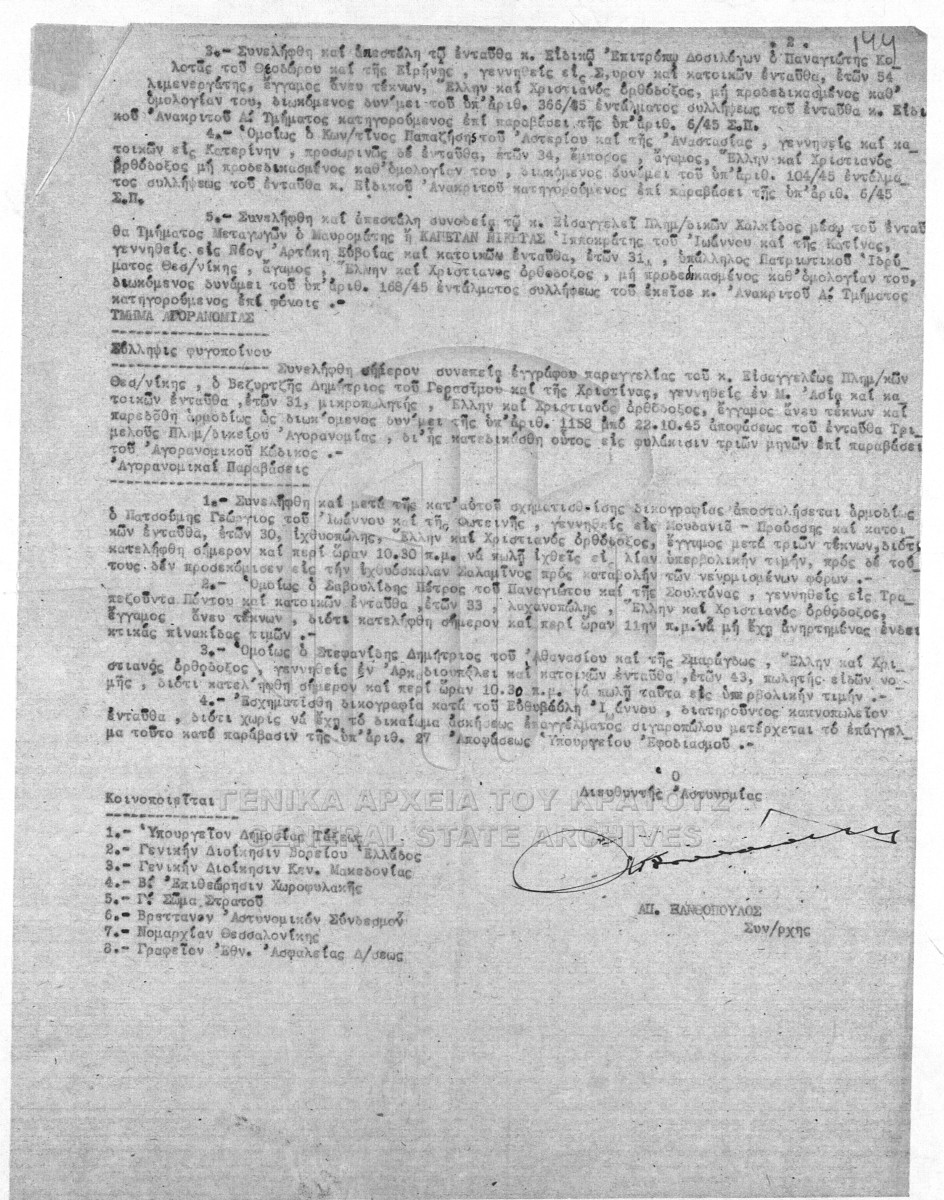 . 2 .
144
3.- Συνελήφθη καί ἀπεστάλη τῷ ἐνταῦθα κ. Εἰδικῷ Ἐπιτρόπῳ Δοσιλόγων ὁ Παναγιώτης Κο
λοτᾶς τοῦ Θεοδώρου καί τῆς Εἰρήνης , γεννηθείς εἰς Σ,υρον καί κατοικῶν ἐνταῦθα, ἐτῶν 54
λιμενεργάτης, ἔγγαμος ἄνευ τέκνων, Ἕλλην καί Χριστιανός ὀρθόδοξος, μή προδεδικασμένος καθ'
ὁμολογίαν του, διωκόμενος δυνάμει τοῦ ὑπ' ἀριθ. 366/45 ἐντάλματος συλλήψεως τοῦ ἐνταῦθα κ. Εἰδι
κοῦ Ἀνακριτοῦ Α΄. Τμήματος κατηγορούμενος ἐπί παραβάσει τῆς ὑπ' ἀριθ. 6/45 Σ.Π.
4.- Ὁμοίως ὁ Κων/τῖνος Παπαζήσης τοῦ Ἀστερίου καί τῆς Ἀναστασίας , γεννηθείς καί κα
τοικῶν εἰς Κατερίνην , προσωρινῶς δέ ἐνταῦθα, ἐτῶν 34, ἔμπορος , ἄγαμος, Ἕλλην καί Χριστιανός
ὀρθόδοξος μή προδεδικασμένος καθ' ὁμολογίαν του , διωκόμενος δυνάμει τοῦ ὑπ' ἀριθ. 104/45 ἐντάλμα
τος συλλήψεως τοῦ ἐνταῦθα κ. Εἰδικοῦ Ἀνακριτοῦ κατηγορούμενος ἐπί παραβάσει τῆς ὑπ' ἀριθ. 6/45
Σ.Π.
5.- Συνελήφθη καί ἀπεστάλη συνοδείᾳ τῷ κ. Εἰσαγγελεῖ Πλημ/δικῶν Χαλκίδος μέσῳ τοῦ ἐνταῦ
θα Τμήματος Μεταγωγῶν ὁ Μαυρομάτης ἤ ΚΑΠΕΤΑΝ ΝΙΚΗΤΑΣ Ἱπποκράτης τοῦ Ἰωάννου καί τῆς Κατίνας,
γεννηθείς εἰς Νέαν Ἀρτάκη Εὐβοίας καί κατοικῶν ἐνταῦθα, ἐτῶν 31, , ὑπάλληλος Πατριωτικοῦ Ἱδρύ
ματος Θεσ/νίκης , ἄγαμος , Ἕλλην καί Χριστιανός ὀρθόδοξος , μή προδεδικασμένος καθ' ὁμολογίαν του,
διωκόμενος δυνάμει τοῦ ὑπ' ἀριθ. 168/45 ἐντάλματος συλλήψεως τοῦ ἐκεῖσε κ. Ἀνακριτοῦ Α΄. Τμήματος
κατηγορούμενος ἐπί φόνοις .-
ΤΜΗΜΑ ΑΓΟΡΑΝΟΜΙΑΣ
Σύλληψις φυγοποίνου
Συνελήφθη σήμερον συνεπείᾳ ἐγγράφου παραγγελίας τοῦ κ. Εἰσαγγελέως Πλημ/κῶν
Θεσ/νίκης , ὁ Βεζυρτζῆς Δημήτριος τοῦ Γερασίμου καί τῆς Χριστίνας, γεννηθείς ἐν Μ. Ἀσίᾳ καί κα
τοικῶν ἐνταῦθα ,ἐτῶν 31, μικροπωλητής , Ἕλλην καί Χριστιανός ὀρθόδοξος, ἔγγαμος ἄνευ τέκνων καί
παρεδόθη ἁρμοδίως ὡς διωκόμενος δυνάμει τῆς ὑπ' ἀριθ. 1158 ἀπό 22.10.45 ἀποφάσεως τοῦ ἐνταῦθα Τρι
μελοῦς Πλημ/δικείου Ἀγορανομίας , δι' ἧς κατεδικάσθη οὗτος εἰς φυλάκισιν τριῶν μηνῶν ἐπί παραβάσει
τοῦ Ἀγορανομικοῦ Κώδικος .-
Ἀγορανομικαί Παραβάσεις
1.- Συνελήφθη καί μετά τῆς κατ' αὐτοῦ σχηματισθείσης δικογραφίας ἀποσταλήσεται ἁρμοδίως
ὁ Πατσούμης Γεώργιος τοῦ Ἰωάννου καί τῆς Φωτεινῆς , γεννηθείς εἰς Μουδανιά - Προύσσης καί κατοι
κῶν ἐνταῦθα, ἐτῶν 30, ἰχθυοπώλης, Ἕλλην καί Χριστιανός ὀρθόδοξος, ἔγγαμος μετά τριῶν τέκνων,διότι
κατελήφθη σήμερον καί περί ὥραν 10.30 π.μ. νά πωλῇ ἰχθεῖς εἰς λίαν ὑπερβολικήν τιμήν, πρός δέ τού
τους δέν προσεκόμισεν εἰς τήν ἰχθυόσκαλαν Σαλαμῖνος πρός καταβολήν τῶν νενομισμένων φόρων .-
2.- Ὁμοίως ὁ Σαβουλίδης Πέτρος τοῦ Παναγιώτου καί τῆς Σουλτάνας , γεννηθείς εἰς Τρα
πεζοῦντα Πόντου καί κατοικῶν ἐνταῦθα ,ἐτῶν 33 , λαχανοπώλης , Ἕλλην καί Χριστιανός ὀρθόδοξος,
ἔγγαμος ἄνευ τέκνων , διότι κατελήφθη σήμερον καί περί ὥραν 11ην π.μ. νά μή ἔχῃ ἀνηρτημένας ἐνδει
κτικάς πινακίδας τιμῶν .-
3.- Ὁμοίως ὁ Στεφανίδης Δημήτριος τοῦ Ἀθανασίου καί τῆς Σμαράγδως , Ἕλλην καί Χρι
στιανός ὀρθόδοξος , γεννηθείς ἐν Ἀρκαδιουπόλει καί κατοικῶν ἐνταῦθα ,ἐτῶν 43, πωλητής εἰδῶν νο
μῆς , διότι κατελήφθη σήμερον καί περί ὥραν 10.30 π.μ. νά πωλῇ ταῦτα εἰς ὑπερβολικήν τιμήν .-
4.- Ἐσχηματίσθη δικογραφία κατά τοῦ Εὐθυβούλη Ἰωάννου , διατηροῦντος καπνοπωλεῖον
ἐνταῦθα , διότι χωρίς νά ἔχῃ τό δικαίωμα ἀσκήσεως ἐπαγγέλματος σιγαροπώλου μετέρχεται τό ἐπάγγελ
μα τοῦτο κατά παράβασιν τῆς ὑπ' ἀριθ. 27 Ἀποφάσεως Ὑπουργείου Ἐφοδιασμοῦ .-
Ὁ
Διευθυντής Ἀστυνομίας
Κοινοποιεῖται
ΓΕΝΙΚΑ ΑΡΧΕΙΑ ΤΟΥ ΚΡΑΤΟΥΣ
GENERAL STATE ARCHIVES
1.- Ὑπουργεῖον Δημοσίας Τάξεως
2.- Γενικήν Διοίκησιν Βορείου Ἑλλάδος
3.- Γενικήν Διοίκησιν Κεν. Μακεδονίας
4.- Β΄. Ἐπιθεώρησιν Χωροφυλακῆς
5.- Γ΄. Σῶμα Στρατοῦ
6.- Βρεττανόν Ἀστυνομικόν Σύνδεσμον
7.- Νομαρχίαν Θεσσαλονίκης
8.- Γραφεῖον Ἐθν. Ἀσφαλείας Δ/σεως
ΑΠ. ΞΑΝΘΟΠΟΥΛΟΣ
Συν/ρχης